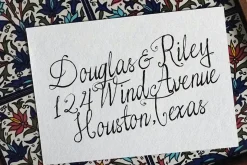 Douglas & Riley
124 Wind Avenue
Houston, Texas